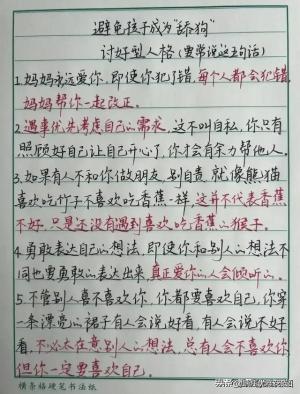 避免孩子成为“舔狗”
讨好型人格(要常说这五句话)
1.妈妈永远爱你,即使你犯了错,每个人都会犯错,
妈妈帮你一起改正。
2.遇事优先考虑自己的需求,这不叫自私,你只有
照顾好自己让自己开心了,你才会有余力帮他人。
3.如果有人不和你做朋友,别自责,就像熊猫
喜欢吃竹子不喜欢吃香蕉一样,这并不代表香蕉
不好,只是还没有遇到喜欢吃香蕉的猴子。
4.勇敢表达自己的想法,即使你和别人的想法不
同也要勇敢的表达出来,真正爱你的人会倾听的。
5.不管别人喜不喜欢你,你都要喜欢自己,你穿
一条漂亮的裙子有人会说好看,有人会说不好
看,不必太在意别人的想法,总有人会不喜欢你,
但你一定要喜欢自己。
横条格硬笔书法纸